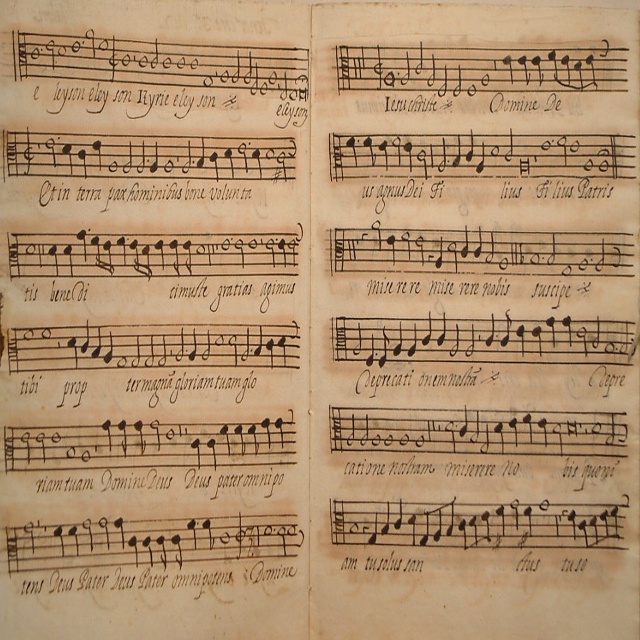 e leyson eley son Kyrie eley son
eleyson
Et in terra pax hominibus bone volunta
tis bene Di cimuste gratias agimus
tibi prop ter magnã gloriam tuam glo
riam tuam Domine Deus Deus pater omni po
tens Deus Pater Deus Pater omnipotens Domine
Iesu christe Domine De
us agnus Dei Fi lius Fi lius Patris
mise re re mise rere nobis suscipe
Deprecati onem nostrã Depre
catione nostram miserere No bis quoni
am tu solus san ctus tu so